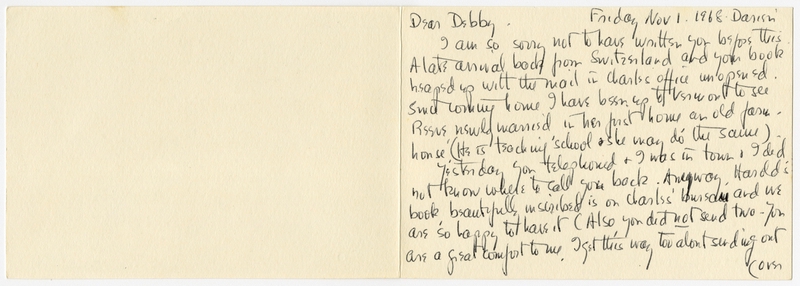 Dear Debby. Friday Nov 1. 1968. Darien
I am so sorry not to have written you before this.
A late arrival back from Switzerland and your book
heaped up with the mail in Charles office unopened.
Since coming home I have been up to Vermont to see
Reeve newly married in her first home an old farm-
house! (He is teaching school & she may do the same).
Yesterday you telephoned & I was in town & I did
not know where to call you back. Anyway, Harold's
book beautifully inscribed is on Charles' bureau and we
are so happy to have it (Also you did not send two - You
are a great comfort to me. I get this way too about sending out
(over